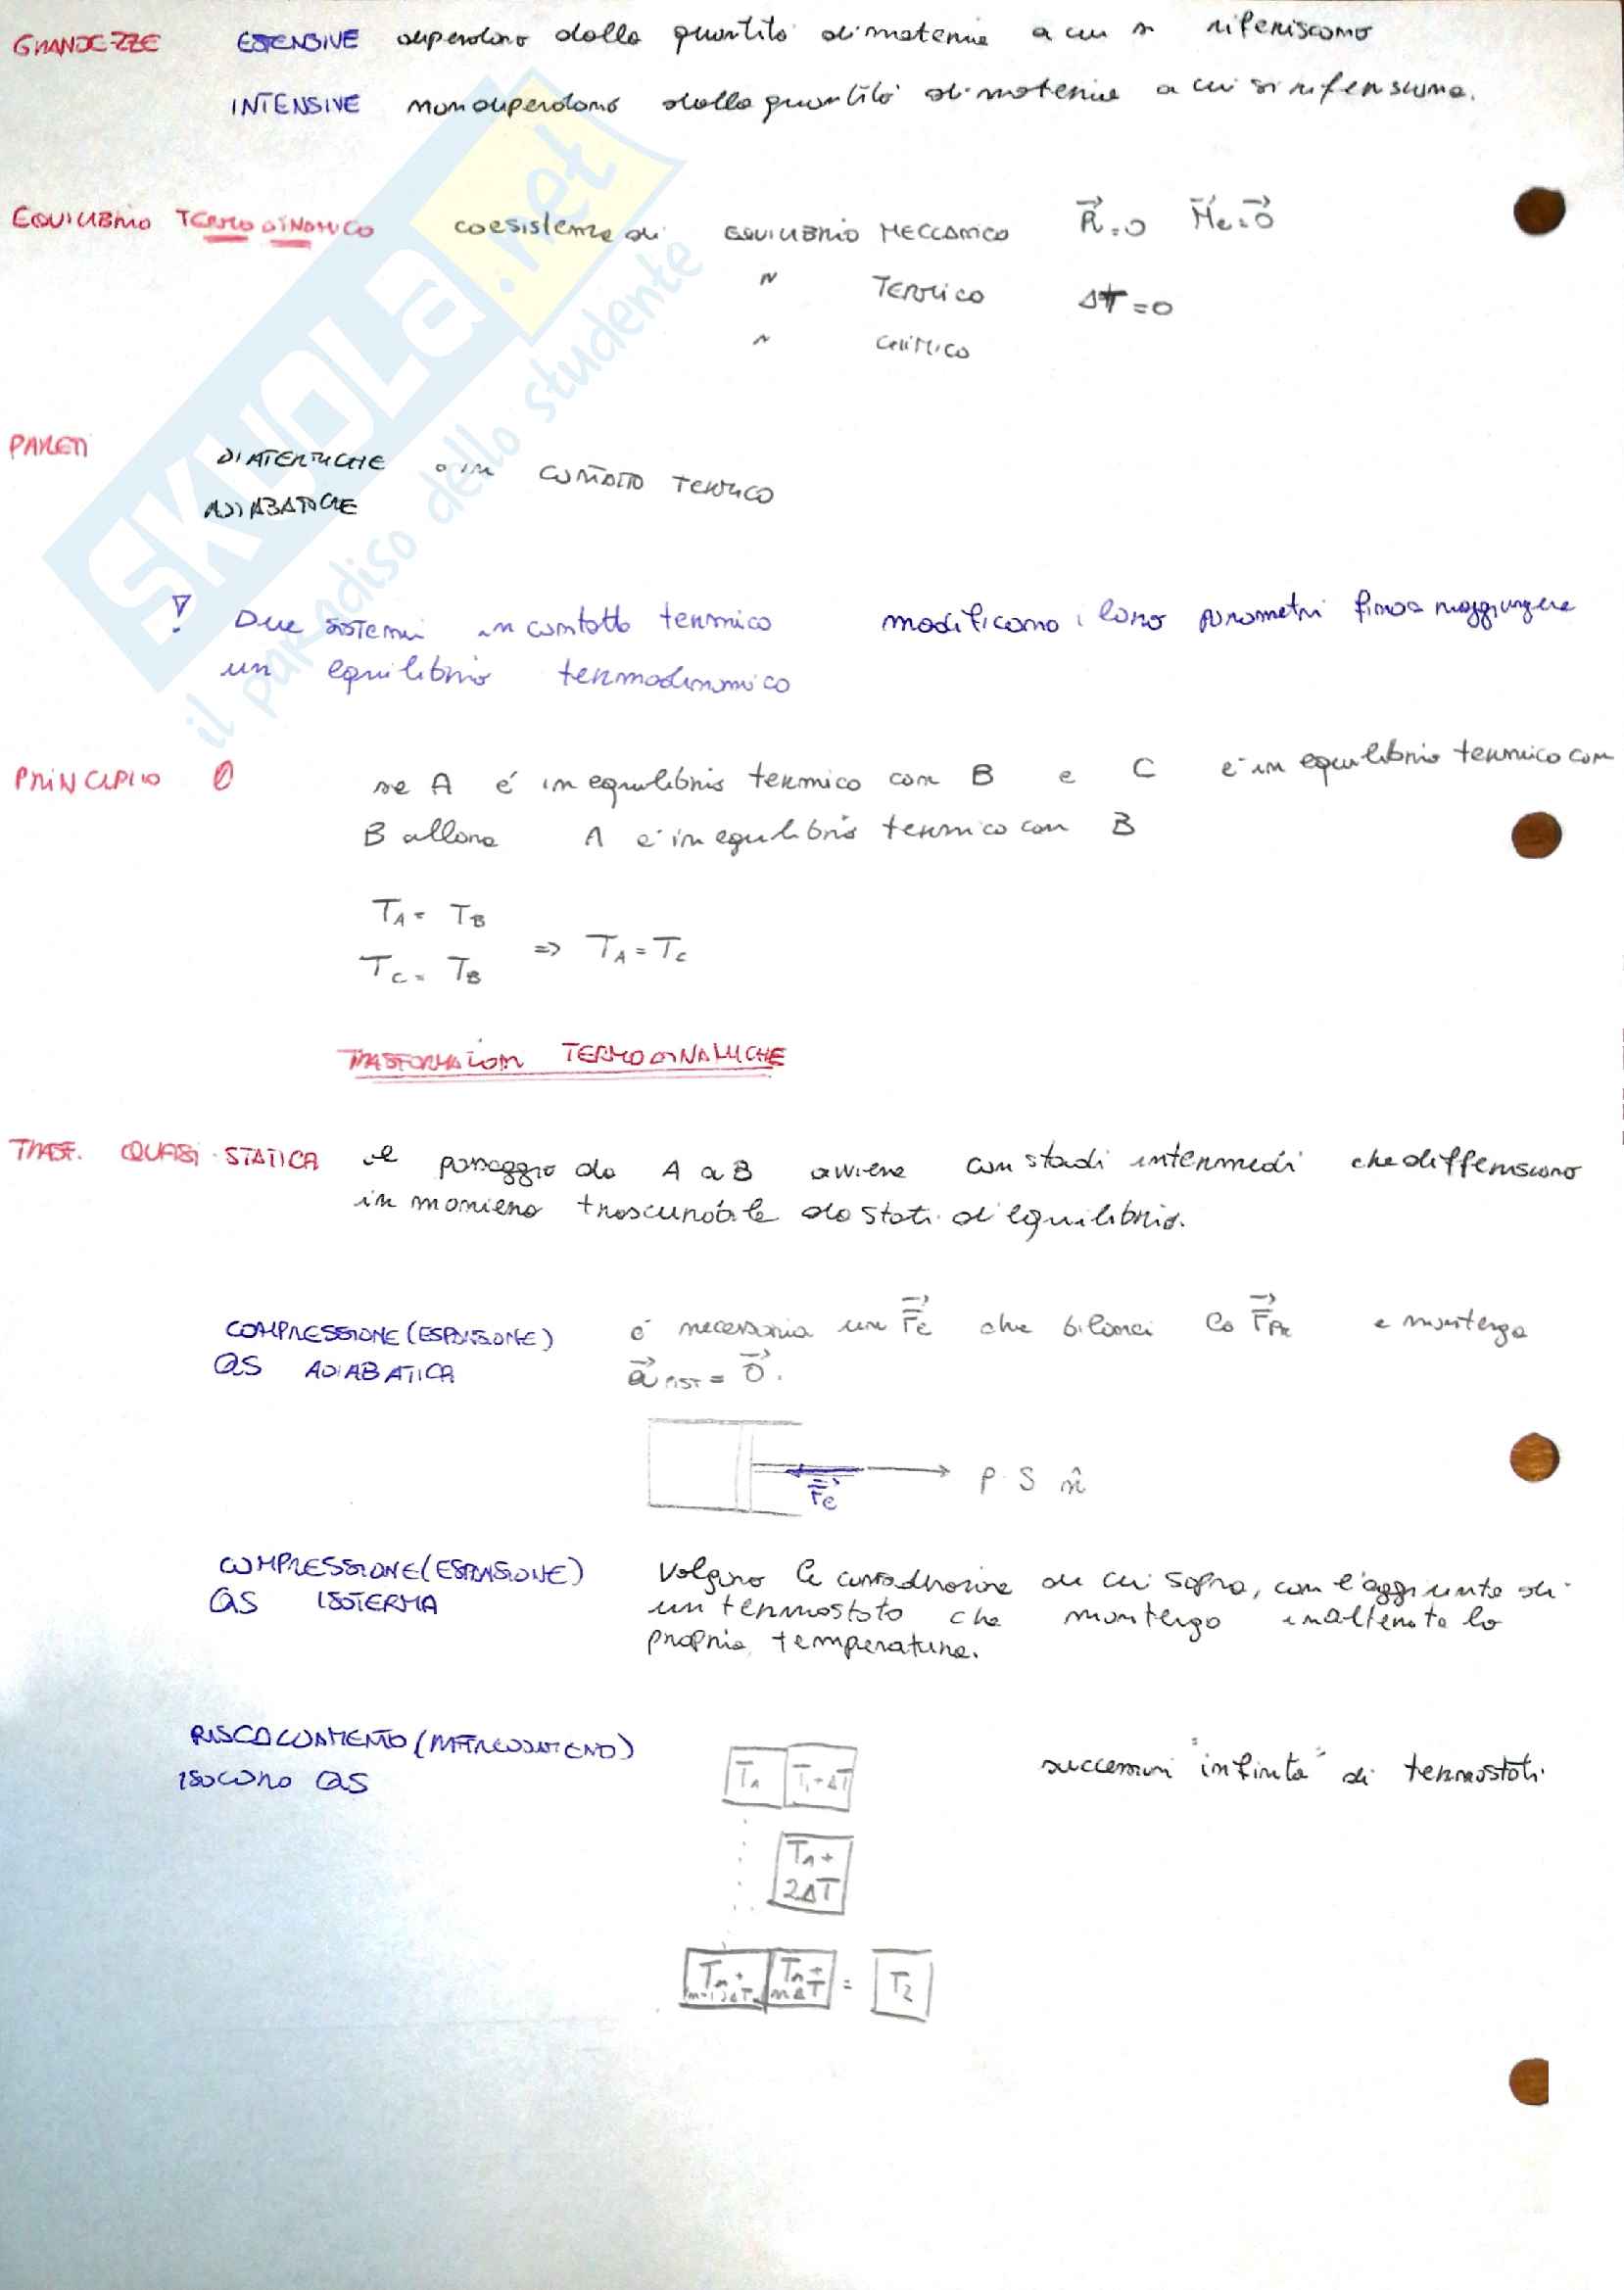 GRANDEZZE ESTENSIVE dipendono dalla quantità di materia a cui si riferiscono
INTENSIVE non dipendono dalla quantità di materia a cui si riferiscono.
EQUILIBRIO TERMODINAMICO coesistenza di EQUILIBRIO MECCANICO R⃗=0 M⃗e=0⃗
" TERMICO ΔT=0
" CHIMICO
PARETI
DIATERMICHE o in CONTATTO TERMICO
ADIABATICHE
! Due sistemi in contatto termico modificano i loro parametri fino a raggiungere
un equilibrio termodinamico
PRINCIPIO 0 se A é in equilibrio termico con B e C é in equilibrio termico con
B allora A é in equilibrio termico con B
TA = TB
TC = TB => TA = TC
TRASFORMAZIONI TERMODINAMICHE
TRASF. QUASI-STATICA il passaggio da A a B avviene con stadi intermedi che differiscono
in maniera trascurabile da stati di equilibrio.
COMPRESSIONE (ESPANSIONE) é necessaria una F⃗e che bilanci la F⃗ e mantenga
QS ADIABATICA a⃗ PIST = 0⃗.
P · S n̂
F⃗e
COMPRESSIONE (ESPANSIONE) Valgono le considerazioni di cui sopra, con l'aggiunta di
QS ISOTERMA un termostato che mantenga inalterata la
propria temperatura.
RISCALDAMENTO (RAFFREDDAMENTO)
ISOCORO QS
T1 T1+ΔT successioni "infinita" di termostati.
T1 +
2ΔT
T1 + (n-1)ΔT T1 + nΔT = T2
SKUOLA.net
il paradiso dello studente